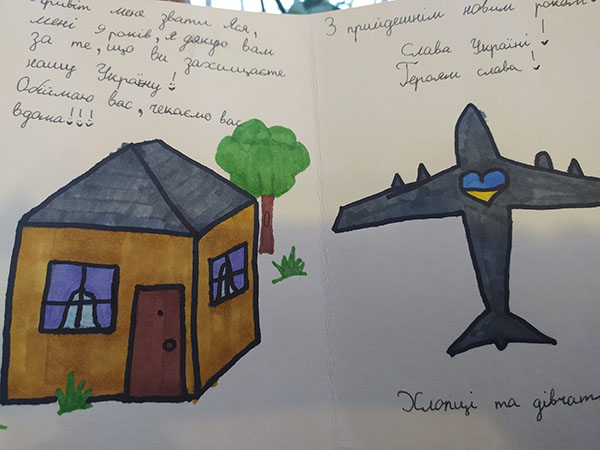 Привіт мене звати Яся,
мені 9 років, я дякую вам
за те, що ви захищаєте
нашу Україну!
Обіймаю вас, чекаємо вас
вдома!!!
З прийдешнім новим роком!
Слава Україні!
Героям слава!
Хлопці та дівчат